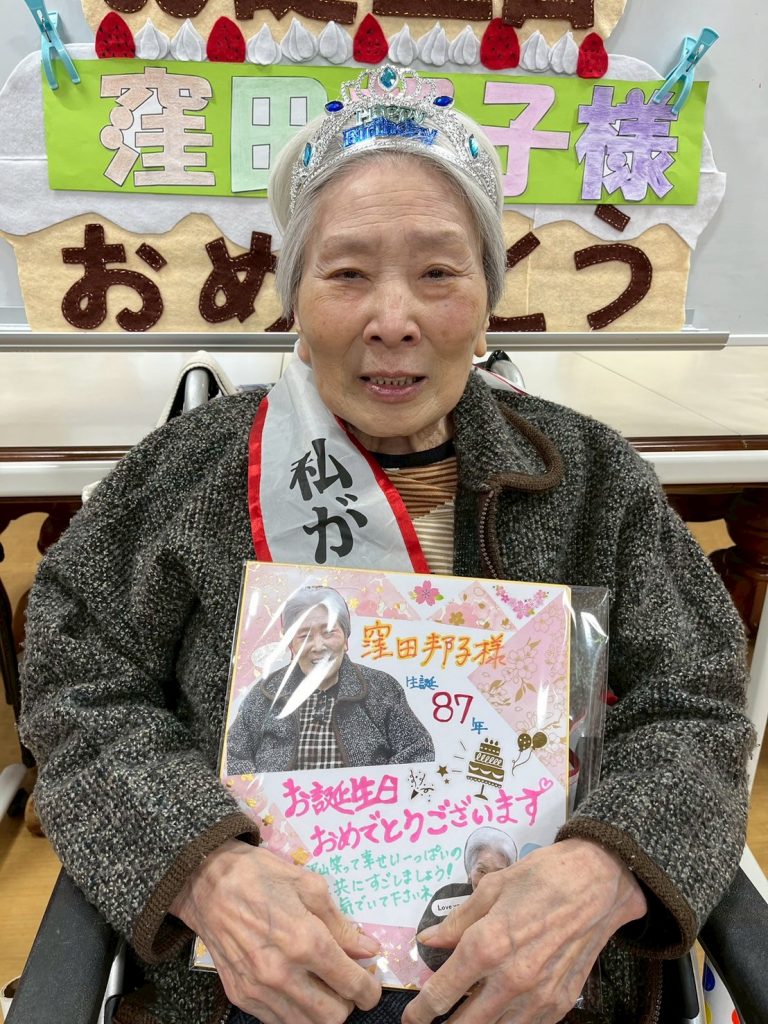 窪田 子様
おめ とう
Happy
Birthday
私が
窪田邦子様
生誕
87年
お誕生日
おめでとうございます
山笑って幸せいっぱいの
共にすごしましょう!
気でいて下さいネ
Love